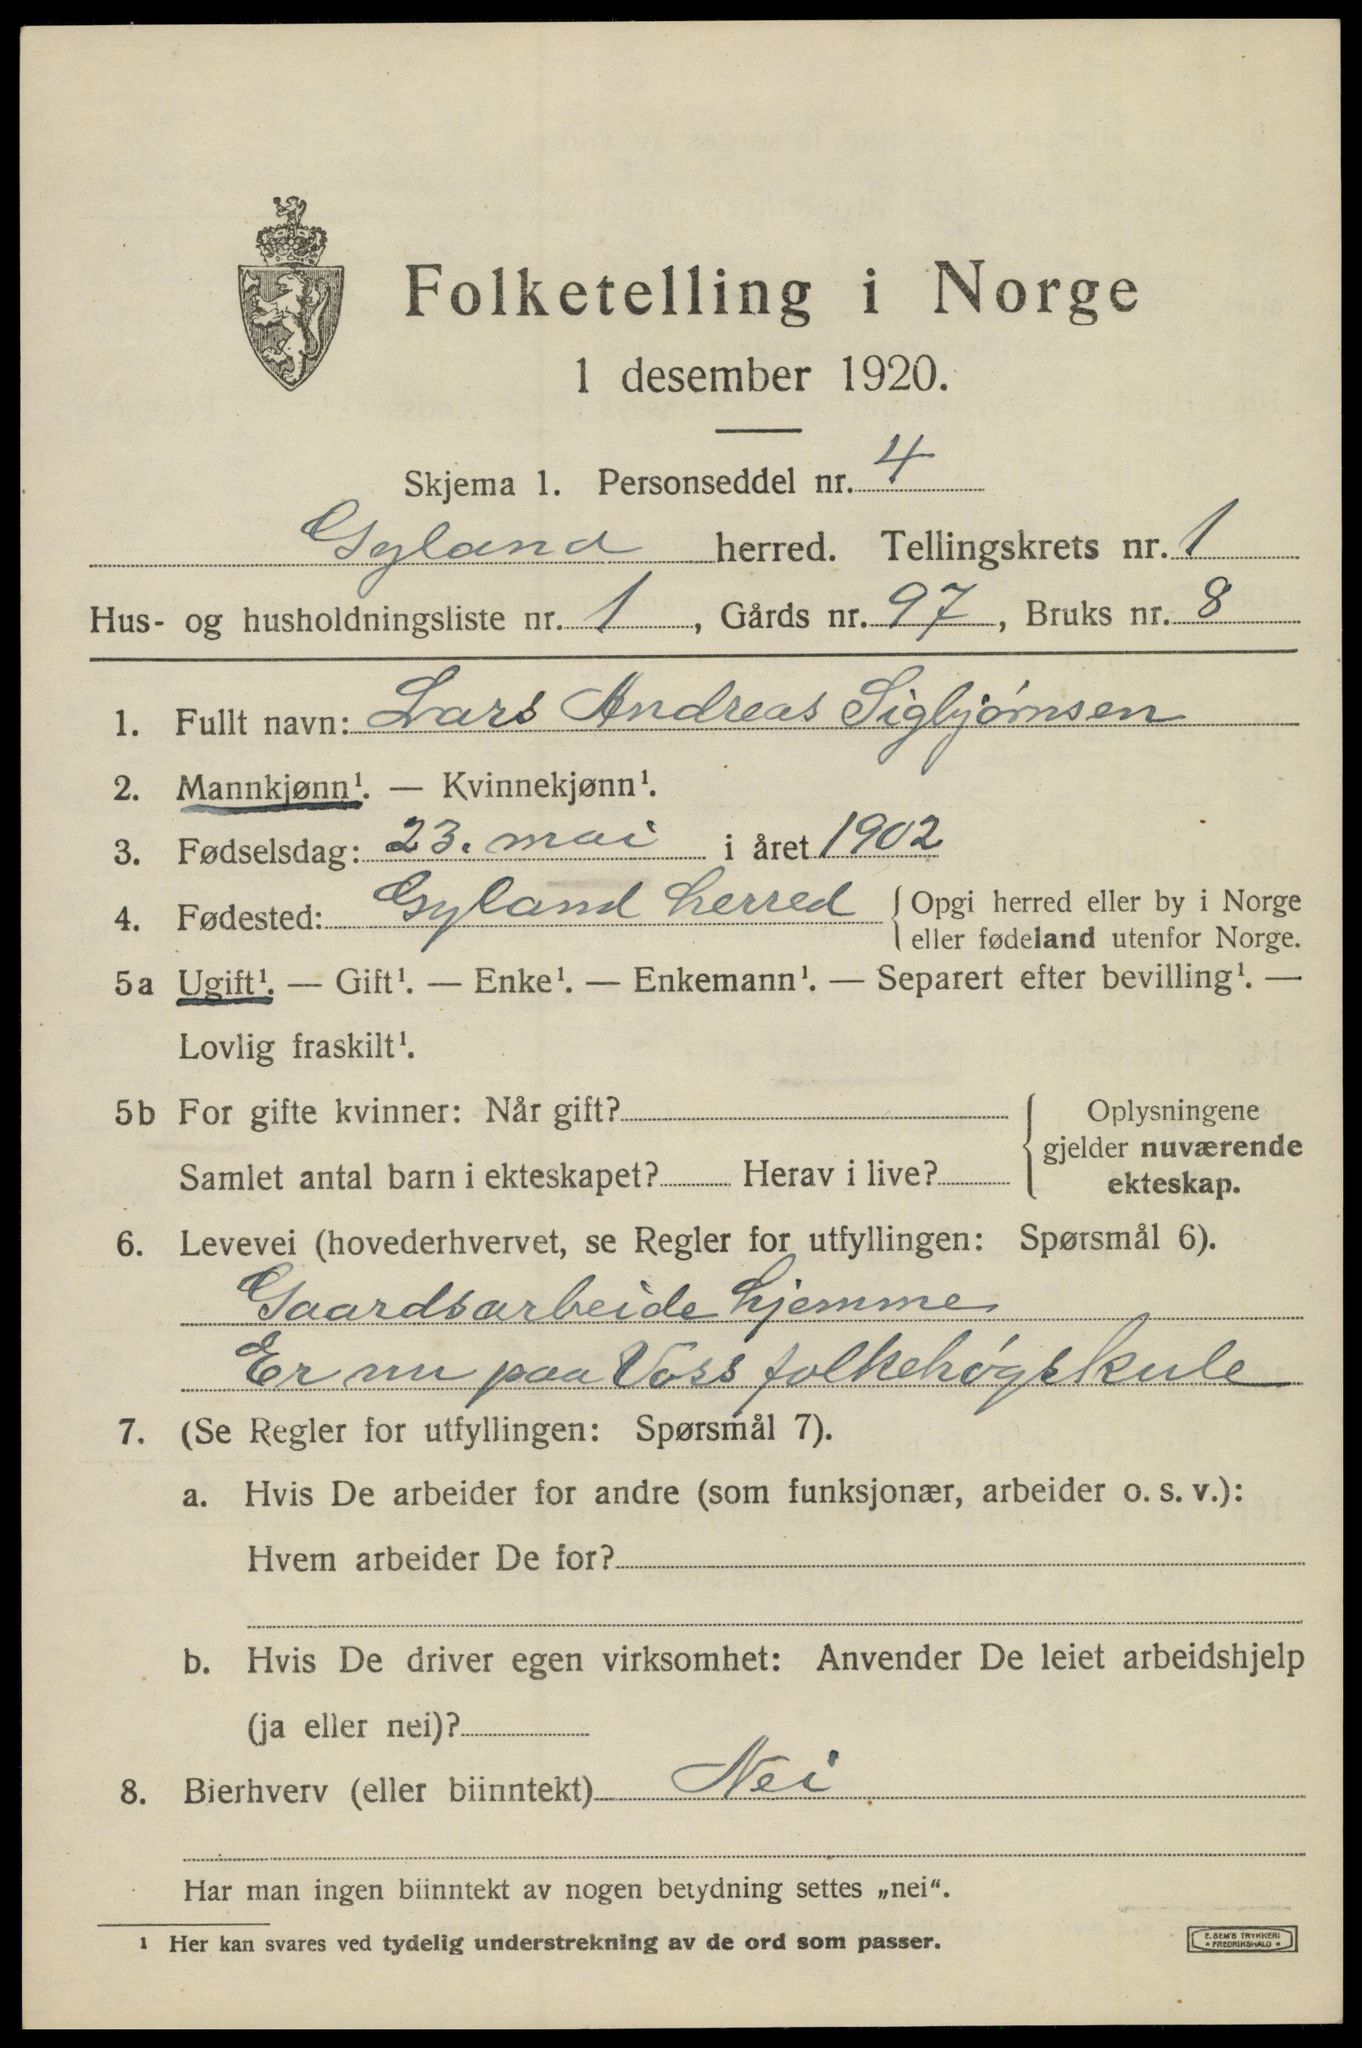 Folketelling i Norge
1 desember 1920.
Skjema 1. Personseddel nr. 4
Gyland herred. Tellingskrets nr. 1
Hus- og husholdningsliste nr. 1, Gårds nr. 97, Bruks nr. 8
1. Fullt navn: Lars Andreas Sigbjørnsen
2. Mannkjønn¹. — Kvinnekjønn¹.
3. Fødselsdag: 23. mai i året 1902
4. Fødested: Gyland herred { Opgi herred eller by i Norge
eller fødeland utenfor Norge.
5a Ugift¹. — Gift¹. — Enke¹. — Enkemann¹. — Separert efter bevilling¹. —
Lovlig fraskilt¹.
5b For gifte kvinner: Når gift?
Samlet antal barn i ekteskapet? Herav i live?
{ Oplysningene
gjelder nuværende
ekteskap.
6. Levevei (hovederhvervet, se Regler for utfyllingen: Spørsmål 6).
Gaardsarbeide hjemme
Er nu paa Voss folkehøgskule
7. (Se Regler for utfyllingen: Spørsmål 7).
a. Hvis De arbeider for andre (som funksjonær, arbeider o. s. v.):
Hvem arbeider De for?
b. Hvis De driver egen virksomhet: Anvender De leiet arbeidshjelp
(ja eller nei)?
8. Bierhverv (eller biinntekt) Nei
Har man ingen biinntekt av nogen betydning settes „nei“.
¹ Her kan svares ved tydelig understrekning av de ord som passer.
E. SEM'S TRYKKERI
• FREDRIKSHALD •